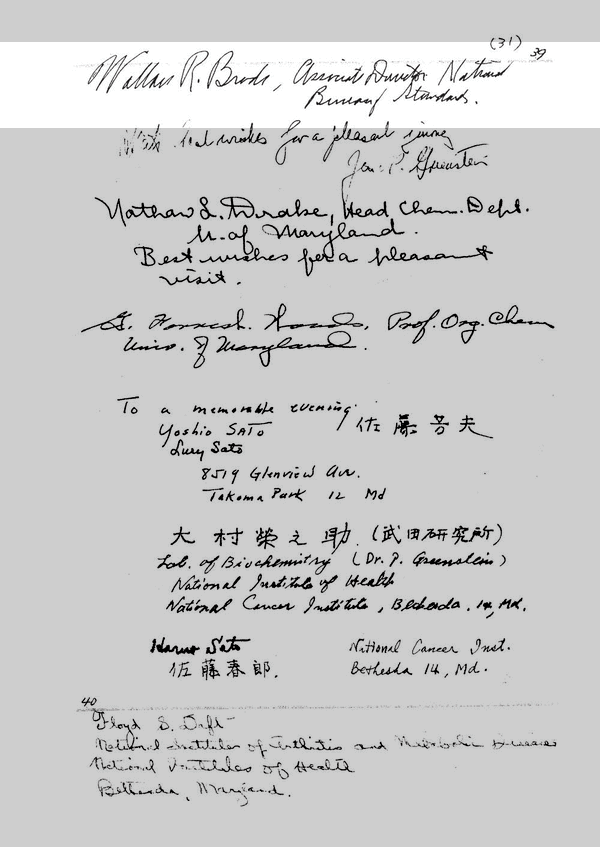 (31)
39
Wallace R. Brode, Associate Director National
Bureau of Standards.
With best wishes for a pleasant journey
Jesse P. Greenstein
Nathan L. Drake, Head Chem. Dept.
U. of Maryland.
Best wishes for a pleasant
visit.
G. Forrest Woods, Prof. Org. Chem
Univ. of Maryland.
To a memorable evening
Yoshio SATO 佐藤芳夫
Lucy Sato
8519 Glenview Ave.
Takoma Park 12 Md
大村榮之助 (武田研究所)
Lab. of Biochemistry (Dr. J. Greenstein)
National Institute of Health
National Cancer Institute, Bethesda. 14, Md.
Haruo Sato National Cancer Inst.
佐藤春郎. Bethesda 14, Md.
40
Floyd S. Daft
National Institutes of Arthritis and Metabolic Diseases
National Institutes of Health
Bethesda, Maryland.